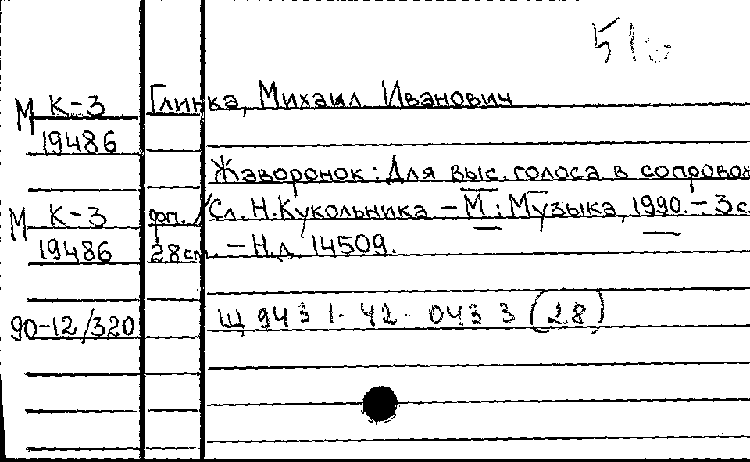 51
М К-3 Глинка, Михаил Иванович
19486
Жаворонок: Для выс. голоса в сопровож
М К-3 фп. / Сл. Н. Кукольника – М.: Музыка, 1990. – 3 с
19486 28 см. – Н.д. 14509.
90-12/320 Щ 943 1-42. 043 3 (28)